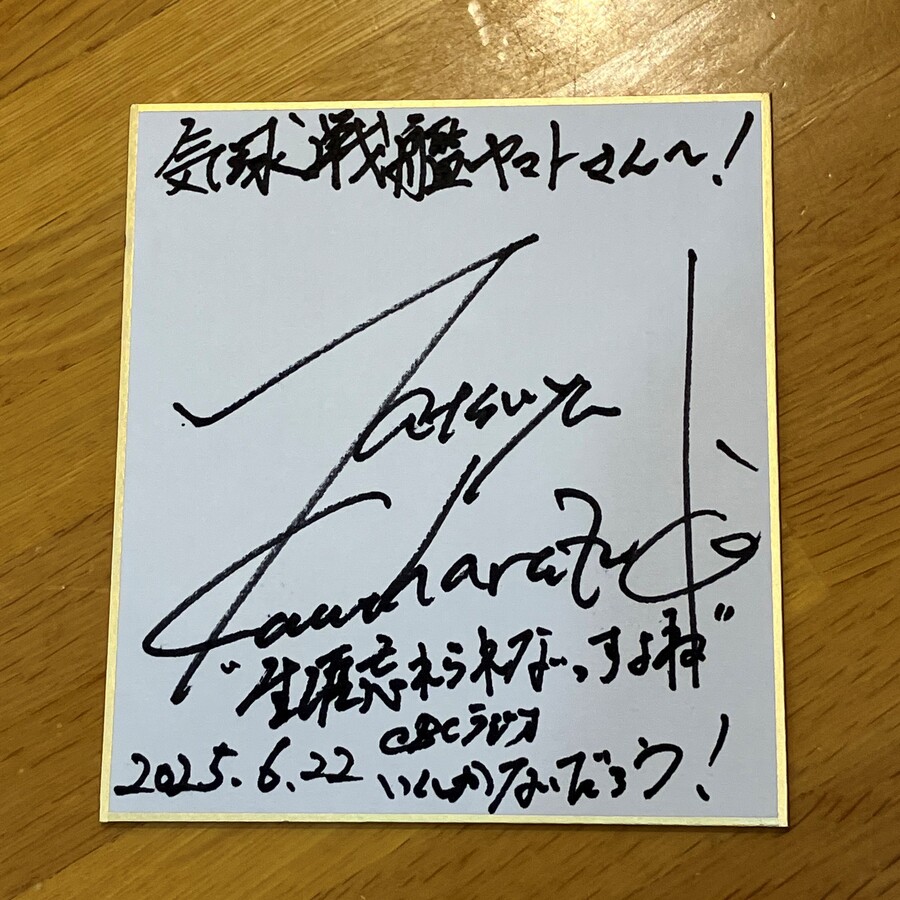 気球戦艦ヤマトさん〜!
Tatsuya
Kawaharazuka
"生涯忘れられないっすよね"
CBCラジオ
2025.6.22 いくしかないだろう!